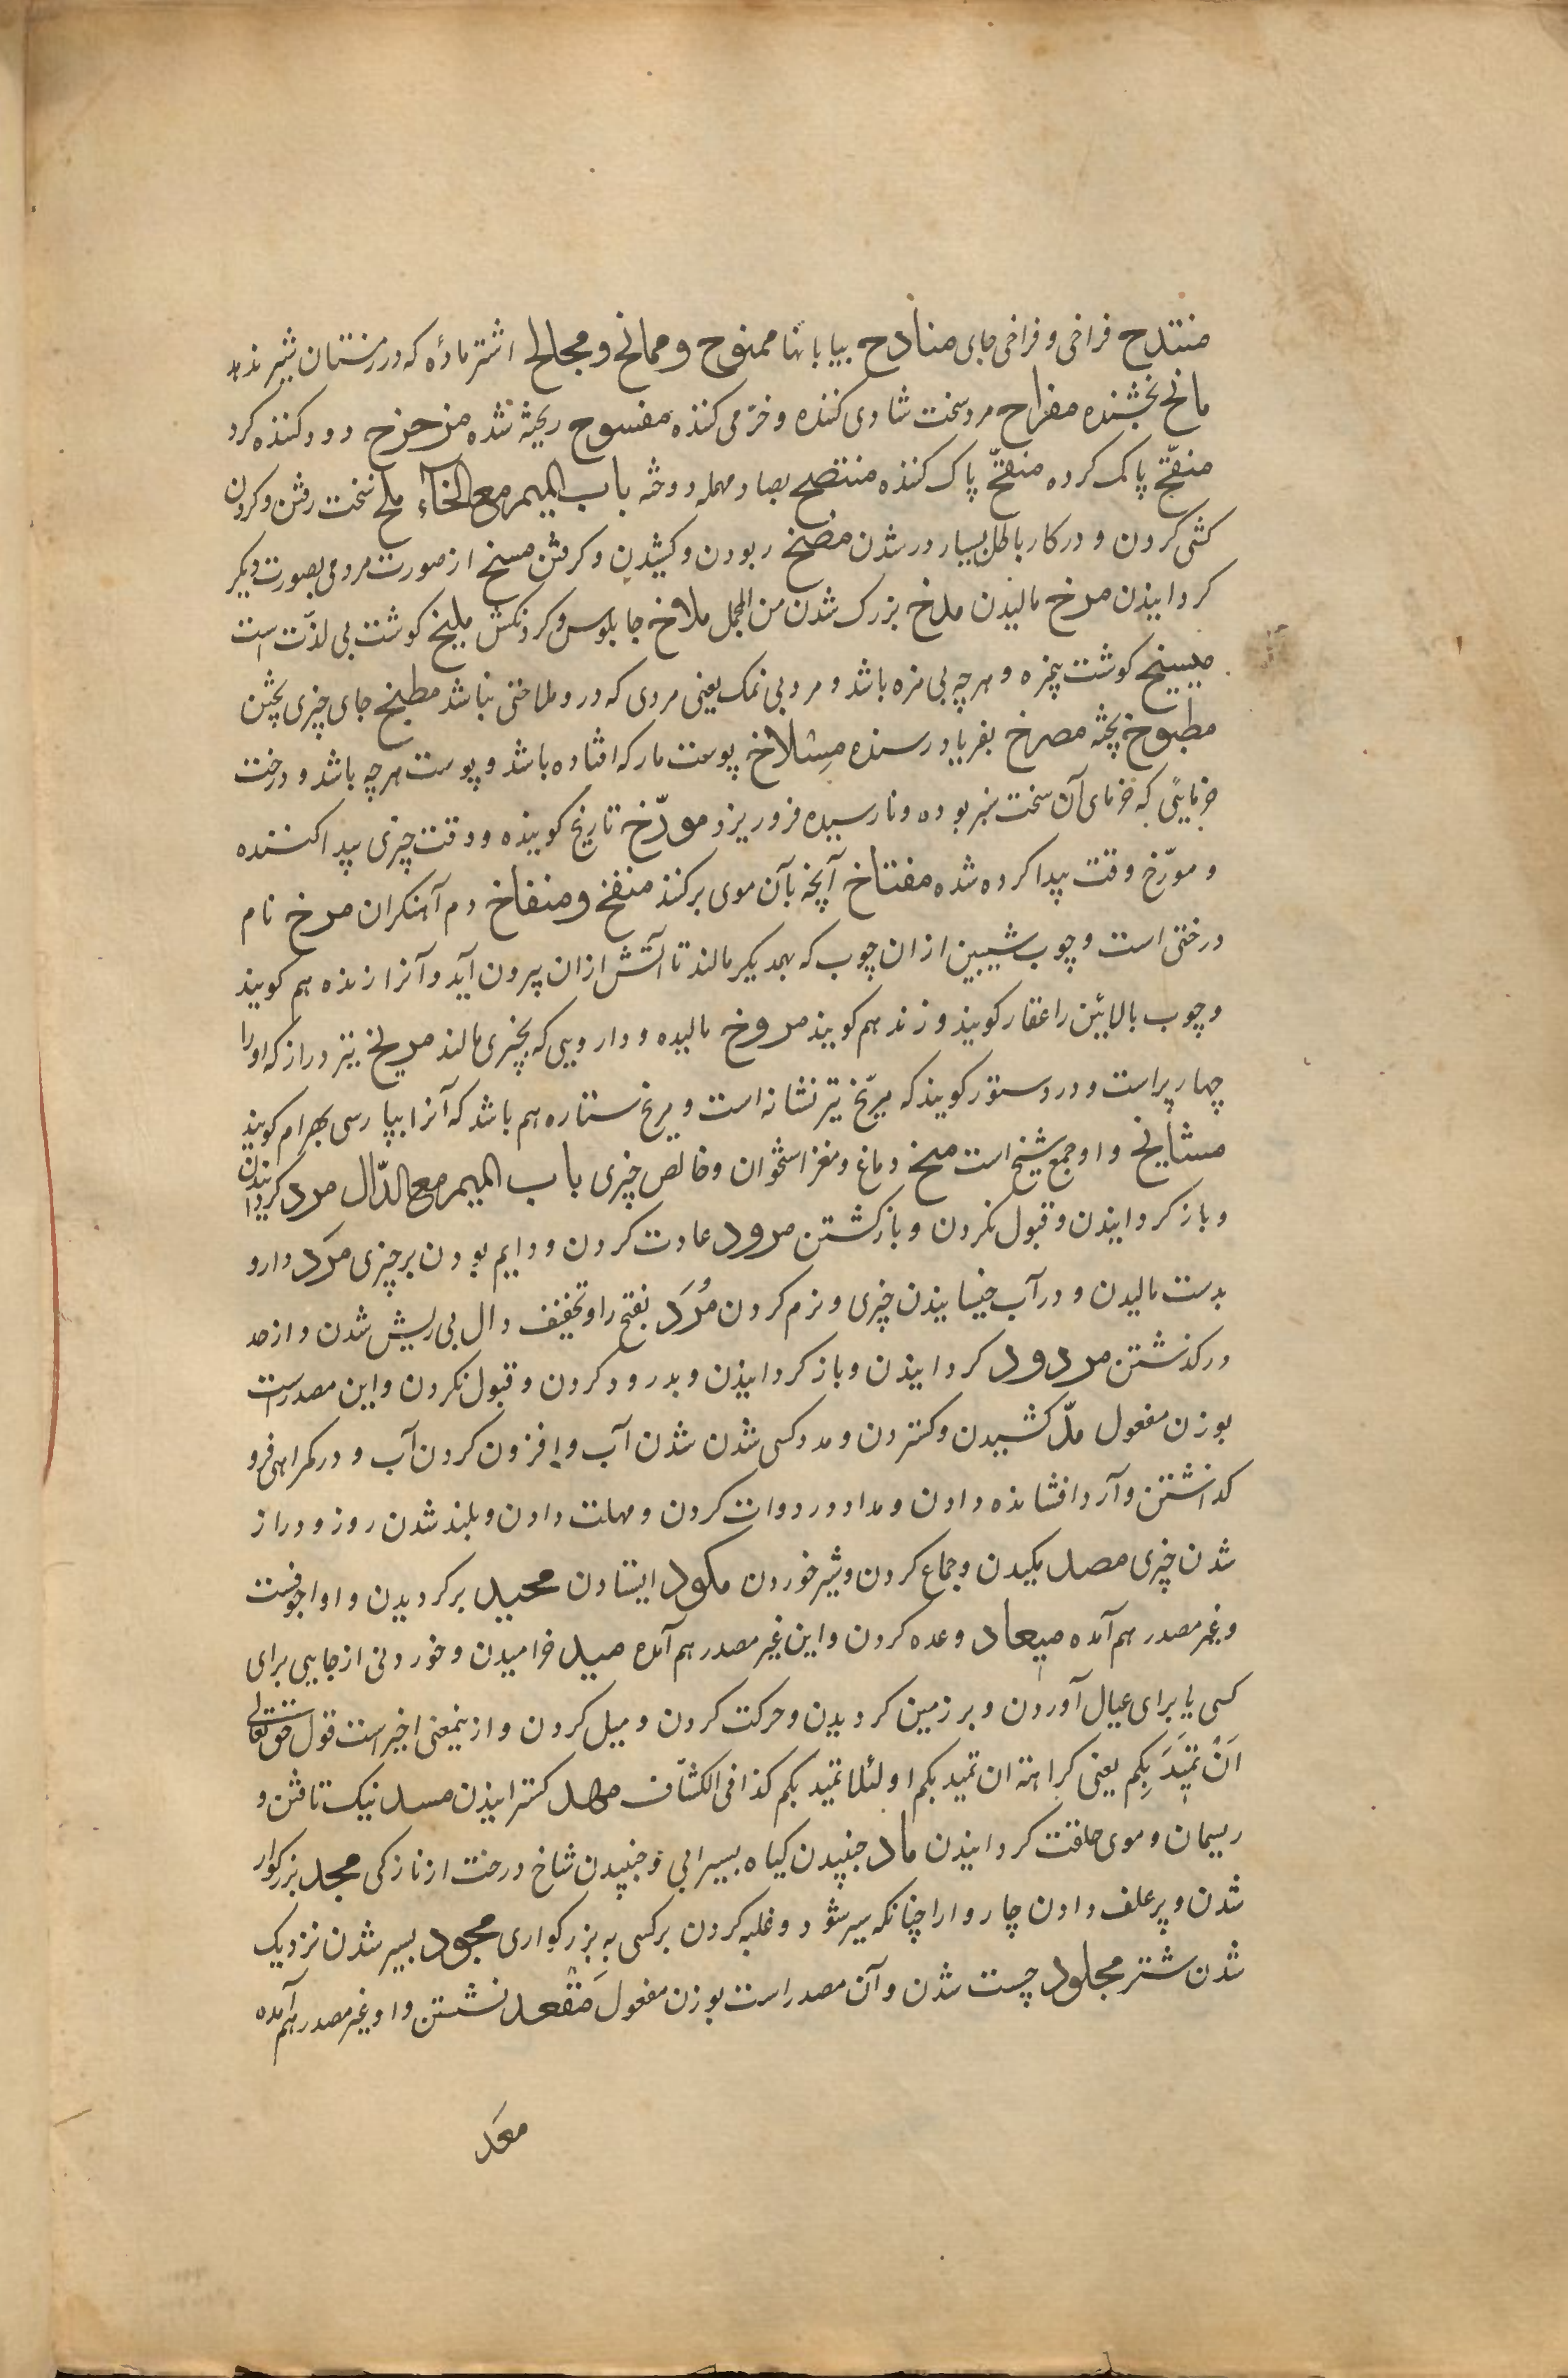 منتدح فراخی و فراخی جای منادح بیابانها ممنوح و ممانح و مجالح اشتر مادهٔ که در زمستان شیر ندهد
مانح بخشنده مفراح مرد سخت شادی کننده و خرمی کننده مفسوح ریخته شده مزحزح دور کننده کرد
منقّح پاک کرده منقّح پاک کننده منتصح بصاد مهمله دوخته باب المیم مع الخاء ملخ سخت رفتن و کردن
کشی کردن و در کار باطل بسیار در شدن مضخ ربودن و کشیدن و کرفتن مسخ از صورت مردمی بصورت دیکر
کردانیذن مرخ مالیدن ملخ بزرک شدن من المجمل ملاخ جابلوس و کردنکش ملیخ کوشت بی لذّت است
مسیخ کوشت پمزه و هرچه بی مزه باشد و مرد بی نمک یعنی مردی که درو ملاحتی نباشد مطبخ جای چیزی پختن
مطبوخ پخته مصرخ بفریاد رسنده مسلاخ پوست مار که افتاده باشد و پوست هرچه باشد و درخت
خرمایئی که خرمای آن سخت سبز بوده و نارسیده فرو ریزد مورّخ تاریخ کوینده و وقت چیزی پیدا کننده
و مورّخ وقت پیدا کرده شده مفتاخ آنچه بآن موی برکنند منفخ و منفاخ دم آهنکران مرخ نام
درختی است و چوب شیبین ازان چوب که بهمدیکر مالند تا آتش ازان بیرون آید و آنرا زنده هم کویند
و چوب بالایین را عقار کویند و زند هم کویند مروخ مالیده و دارویی که بچیزی مالند مریخ تیر دراز که اورا
چهار پر است و در دستور کویند که مرّیخ تیر نشانه است و مریخ ستاره هم باشد که آنرا بپارسی بهرام کویند
مشایخ و او جمع شیخ است مخ دماغ و مغز استخوان و خالص چیزی باب المیم مع الدّال مرد کردانیدن
و باز کردانیذن و قبول نکردن و باز کشتن مرود عادت کردن و دایم بودن بر چیزی مَرَد دارو
بدست مالیدن و در آب خیسانیذن چیزی و نرم کردن مُرَد بفتح را و تخفیف دال بی ریش شدن و از حد
در کذشتن مردود کردانیذن و باز کردانیذن و بدرود کردن و قبول نکردن و این مصدر است
بوزن مفعول مدّ کشیدن و کستردن و مدد کسی شدن شدن آب و افزون کردن آب و در کمراهی فرو
کذاشتن و آرد افشانده دادن و مداد در دوات کردن و مهلت دادن و بلند شدن روز و دراز
شدن چیزی مصد مکیدن و جماع کردن و شیر خوردن مکود ایستادن محید برکردیدن و او اجوفست
و غیر مصدر هم آمده میعاد وعده کردن و این غیر مصدر هم آمده مید خرامیدن و خوردنی از جایی برای
کسی یا برای عیال آوردن و بر زمین کردیدن و حرکت کردن و میل کردن و ازینمعنی اخیر است قول حق تعالی
اَنْ تَمیدَ بِکم یعنی کراهته ان تمید بکم او لئلا تمید بکم کذا فی الکشّاف مهد کسترانیذن مسد نیک تافتن و
ریسمان و موی حلقت کردانیذن ماد جنبیدن کیاه بسیرابی و جنبیدن شاخ درخت از نازکی مجد بزرکوار
شدن و پر علف دادن چاروا را چنانکه سیر شود و غلبه کردن بر کسی به بزرکواری مجود بسیر شدن نزدیک
شدن شتر مجلود چست شدن و آن مصدر است بوزن مفعول مَقْعد نشستن و او غیر مصدر هم آمده
معَد